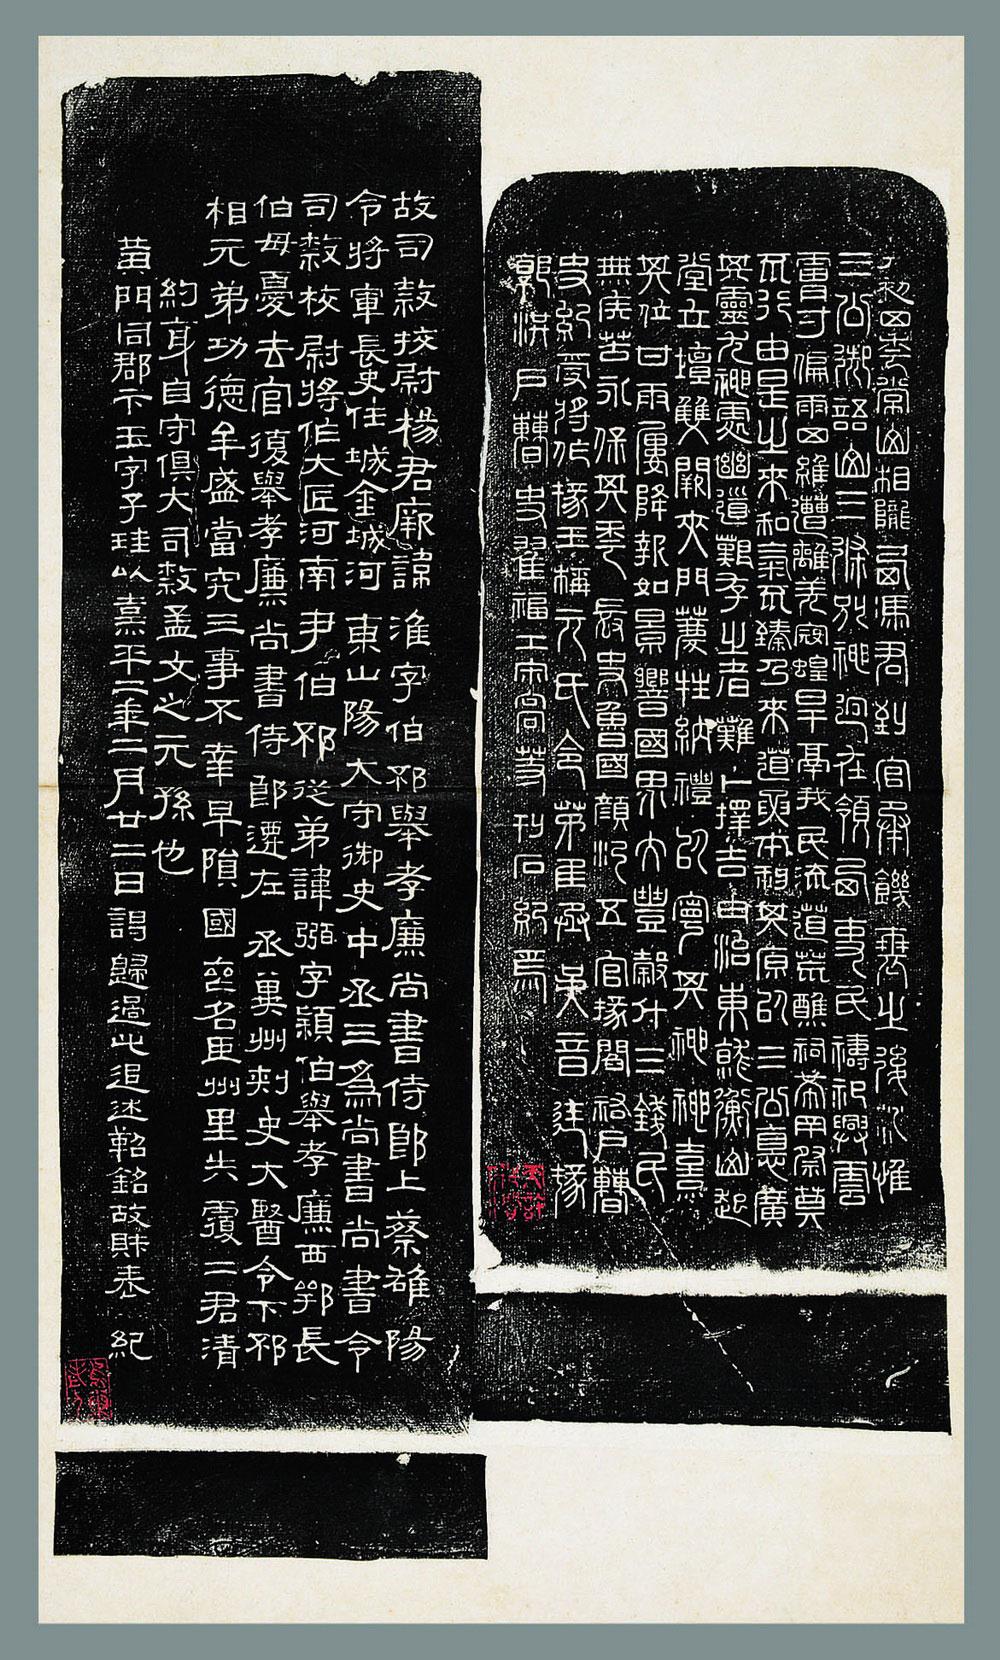 初四年常山相隴西馮君到官承饑衰之後惟
三公御語山三條別神迥在領西吏民禱祀興雲
膚寸偏雨四維遭離羌寇蝗旱鬲我民流道荒醮祠希罕奠
不行由是之來和氣不臻乃來道要本祖其原以三公惪廣
其靈尤神處幽道艱存之者難卜擇吉治東就衡山起
堂立壇雙闕夾門薦牲納禮以寧其神神熹
其位甘雨屢降報如景響國界大豐穀斗三錢民
無疾苦永保其年長史魯國顏浮五官掾閻祐戶曹
史紀受將作掾王元氏令茅匡丞吳音廷掾
郭洪戶曹史翟福工宋高等刊石紀焉
故司隸校尉楊君厥諱淮字伯邳舉孝廉尚書侍郎上蔡雒陽
令將軍長史任城金城河東山陽大守御史中丞三為尚書尚書令
司隸校尉將作大匠河南尹伯邳從弟諱弼字穎伯舉孝廉西鄂長
伯母憂去官復舉孝廉尚書侍郎遷左丞冀州刺史大醫令下邳
相元弟功德牟盛當究三事不幸早隕國喪名臣州里失覆二君清
約身自守俱大司隸孟文之元孫也
黃門同郡卞玉字子珪以熹平二年二月廿二日謁歸過此追述勒銘故財表紀